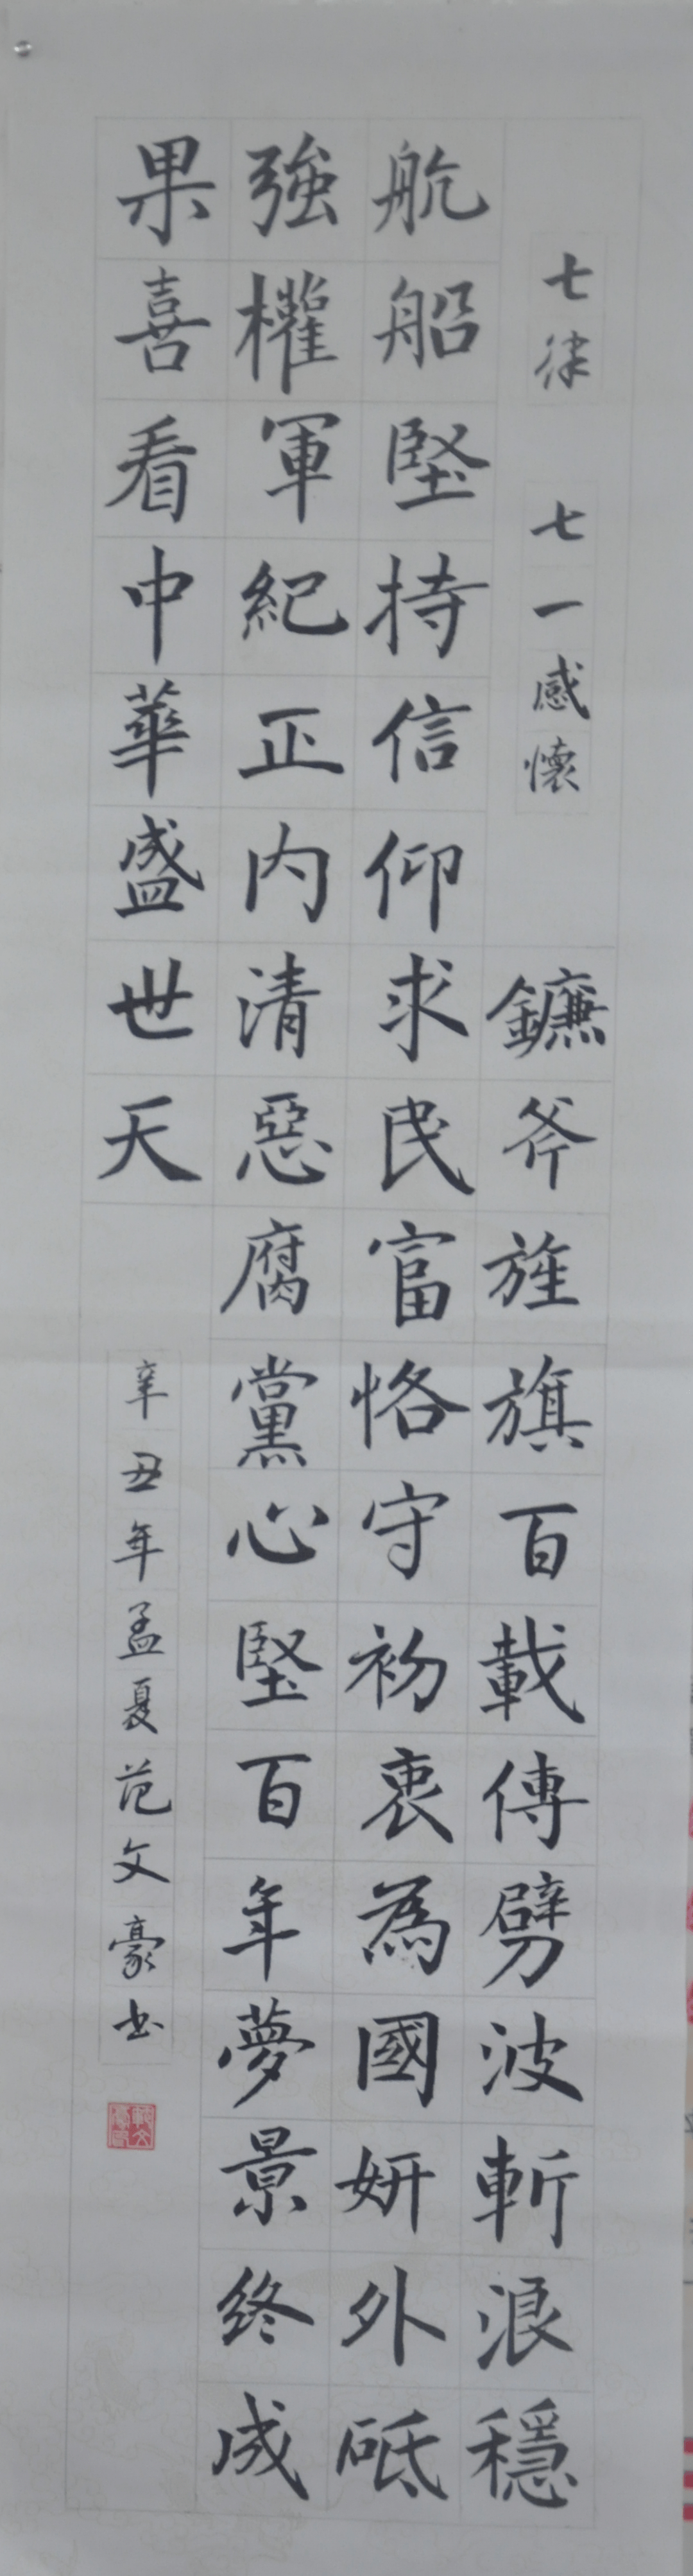 七律 七一感懷 鐮斧旌旗百載傳劈波斬浪穩
航船堅持信仰求民富恪守初衷為國妍外砥
強權軍紀正內清惡腐黨心堅百年夢景终成
果喜看中華盛世天
辛丑年孟夏范文豪书